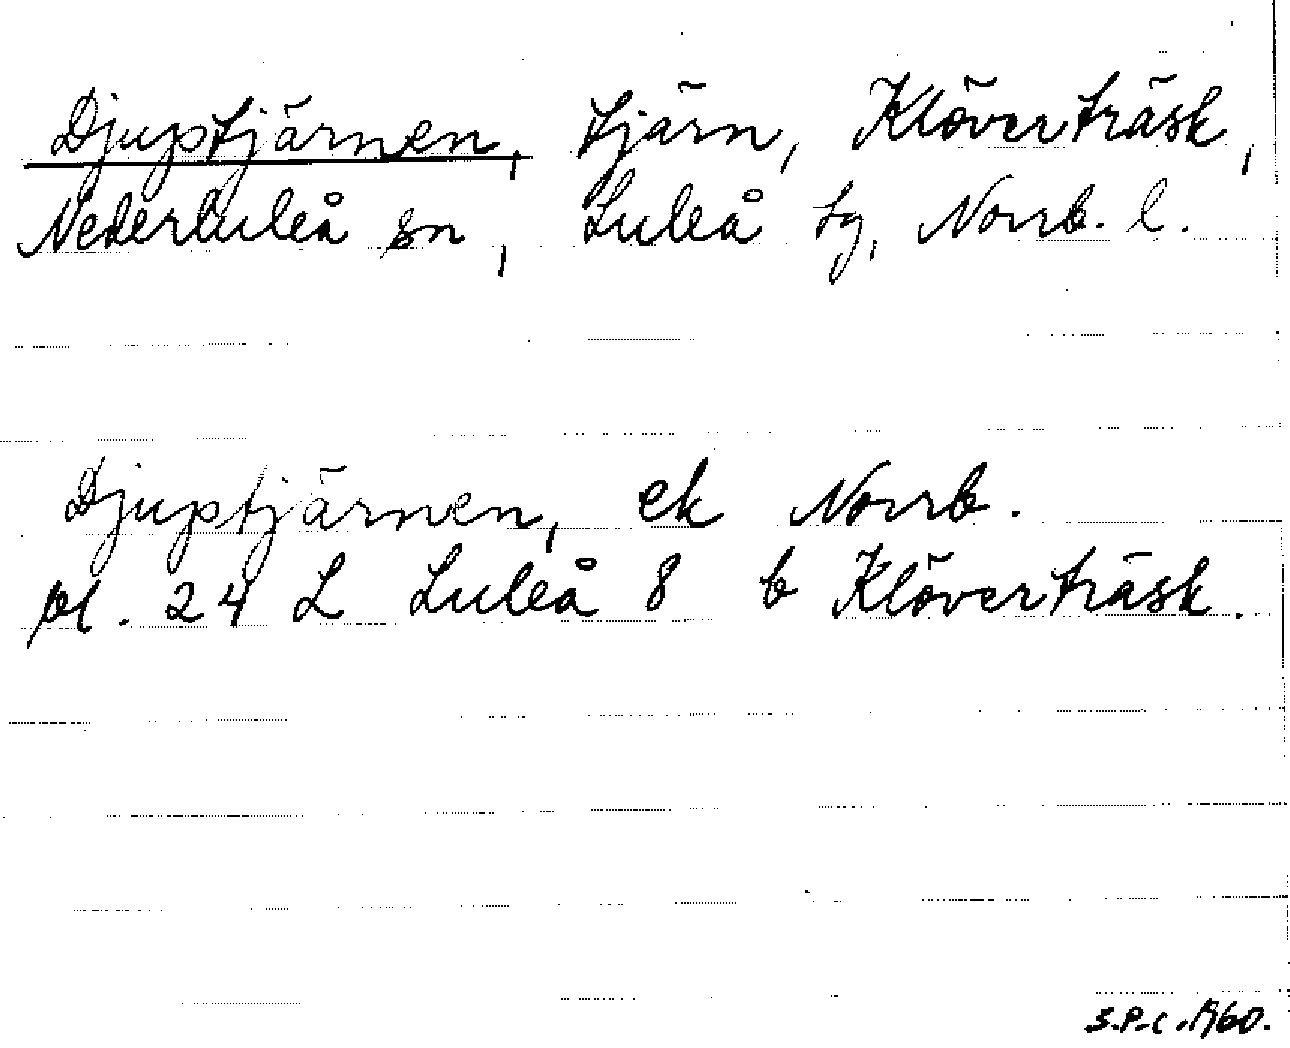 Djuptjärnen, tjärn, Klöverträsk,
Nederluleå sn, Luleå tg, Norrb. l.
Djuptjärnen, ek Norrb.
bl. 24 L Luleå 8 b Klöverträsk.
S.P.C. 1960.